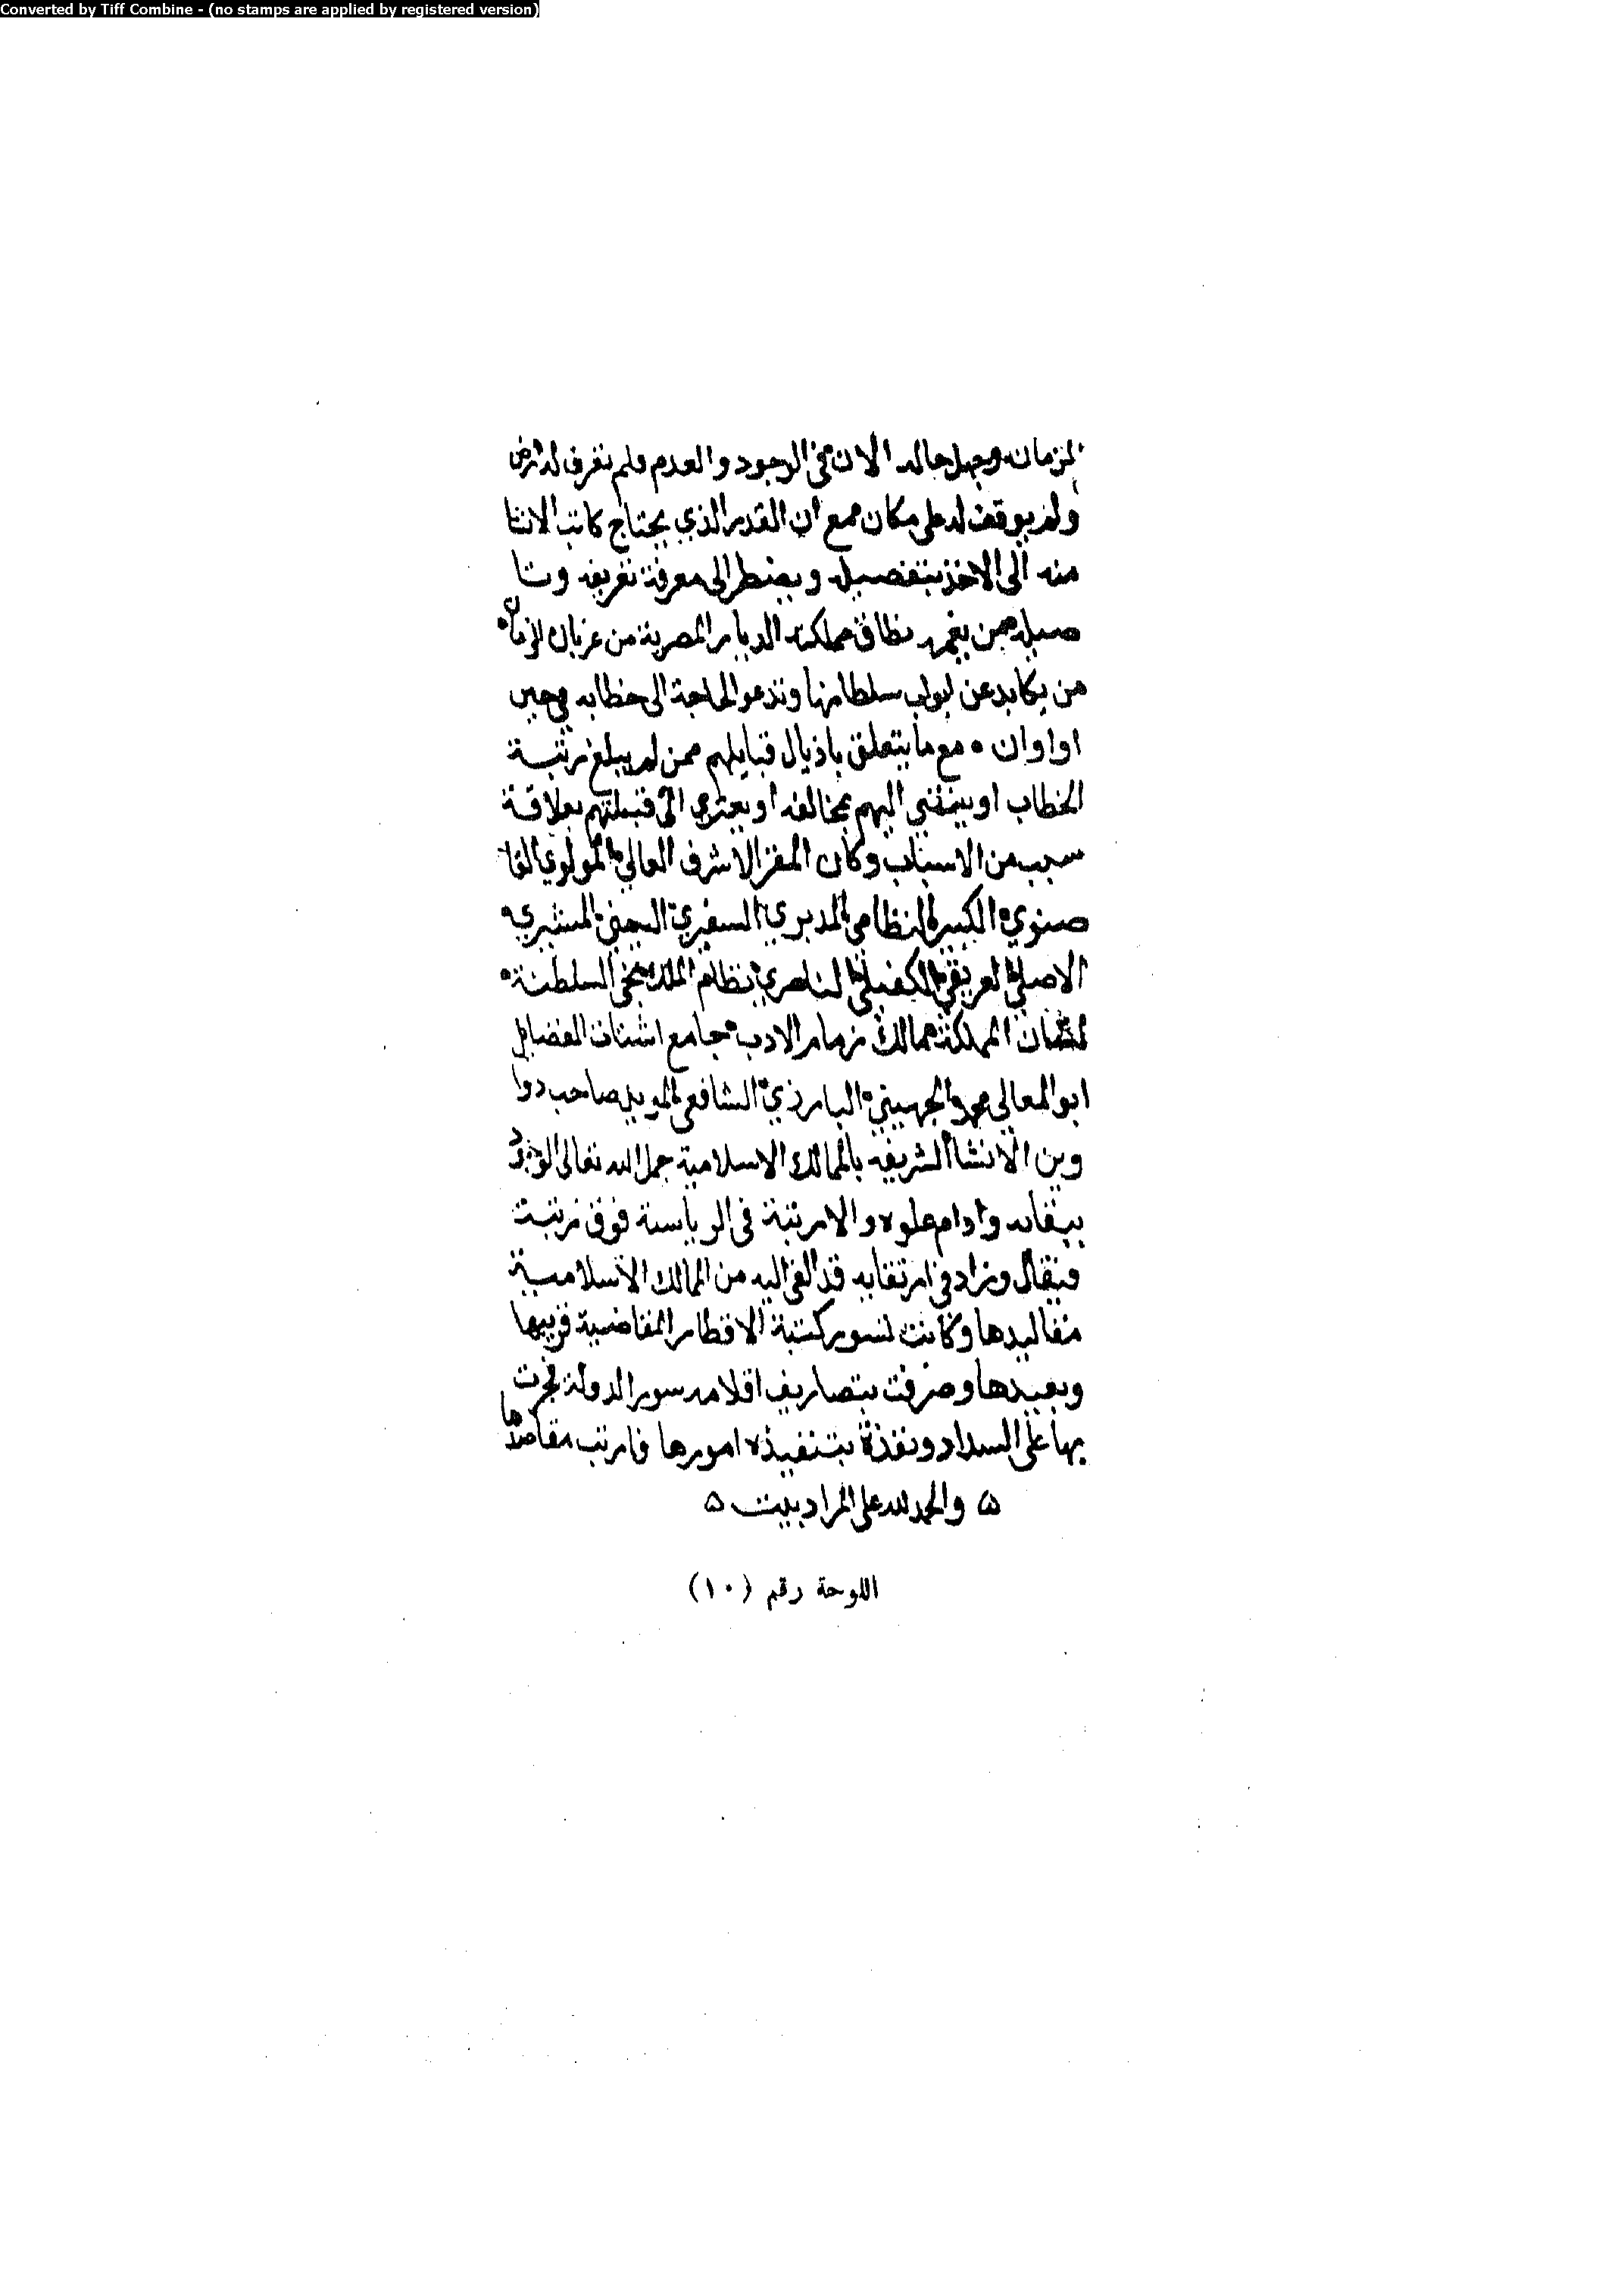 Converted by Tiff Combine - (no stamps are applied by registered version)
الزمان وجهل حاله الان في الوجود والعدم ولم تعرف له ارض
ولم يوقف له على مكان مع ان القدر الذي يحتاج كاتب الانشا
منه الى الاخذ بتفصيله ويضطر الى معرفة تعريفه وتا
صيله من نظاق مملكة الديار المصرية من عربان الزمان
من يكاتب عن ابواب سلطانها وتدعو الحاجة الى خطابه في حين
او اوان ه مع ما يتعلق باذيال قبايلهم ممن لم يبلغ رتبة
الخطاب او ينتمي اليهم بمحالفه او يعتزي الى قبيلتهم بعلاقة
سبب من الاسباب وكان المقر الاشرف العالي المولوي القا
ضوي الكبيري النظامي المدبري السفيري اليميني المشيري
الاصيلي العريقي الكفيلي الناصري نظام الملك السلطنة
لسان المملكة مالك زمام الادب جامع اشتات الفضايل
ابو المعالي محمد الجهيني البارزي الشافعي المويدي صاحب دوا
وين الانشا الشريفه بالممالك الاسلامية جمل الله تعالى الوجود
ببقايه وادام علوه والا رتبة في الرياسة فوق رتبة
فيقال وزاد في ارتقايه قد القى اليه من الممالك الاسلامية
مقاليدها وكانت كتبة الاقطار قريبها
وبعيدها وصرفت بتصاريف اقلامه سور الدولة فجرت
بها على السداد ونفذة بتنفيذه امورها مقاصدها
ه والحمد لله على المراد بيت ه
اللوحة رقم (١٠)